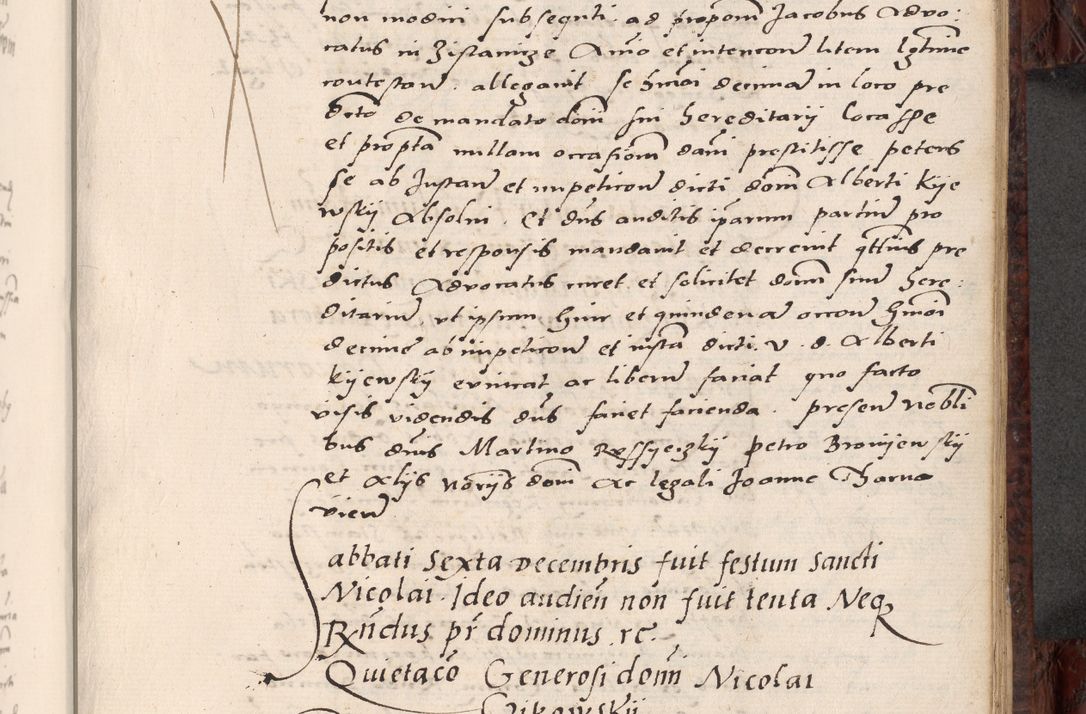 non modici subsequti. ad propom Jacobus Advo:
catus in Zistanicze Animo et intencon litem lgtime
contestan. allegavit se hmoi decimam in loco pre
dcto de mandato dom sui hereditarij locasse
et propta nullam occasiom dam prestitisse petens
se ab Instan et impeticon dicti dom Alberti Kije
wskij Absolui. Et dns auditis iparum partium pro
positis et responsis mandavit et decrevit qttus pre
dictus Advocatus curet et solicitet dom suum here:
ditarium ut ipsum hinc et quindenam occon hmoi
decime ab impeticon et insta dicti. v. d. Alberti
Kijewskij evincat ac liberum faciat quo facto
visis videndis dns faciet facienda. presen nobli
bus dnis Martino petro Bronijewskij
et Alijs noriis dom Ac legali Joanne Tharno
vien
Sabbati Sexta Decembris fuit festum sancti
Nicolai. Ideo audien non fuit tenta Neq
Rndus pr dominus rc.
Quietaco Generosi domi Nicolai